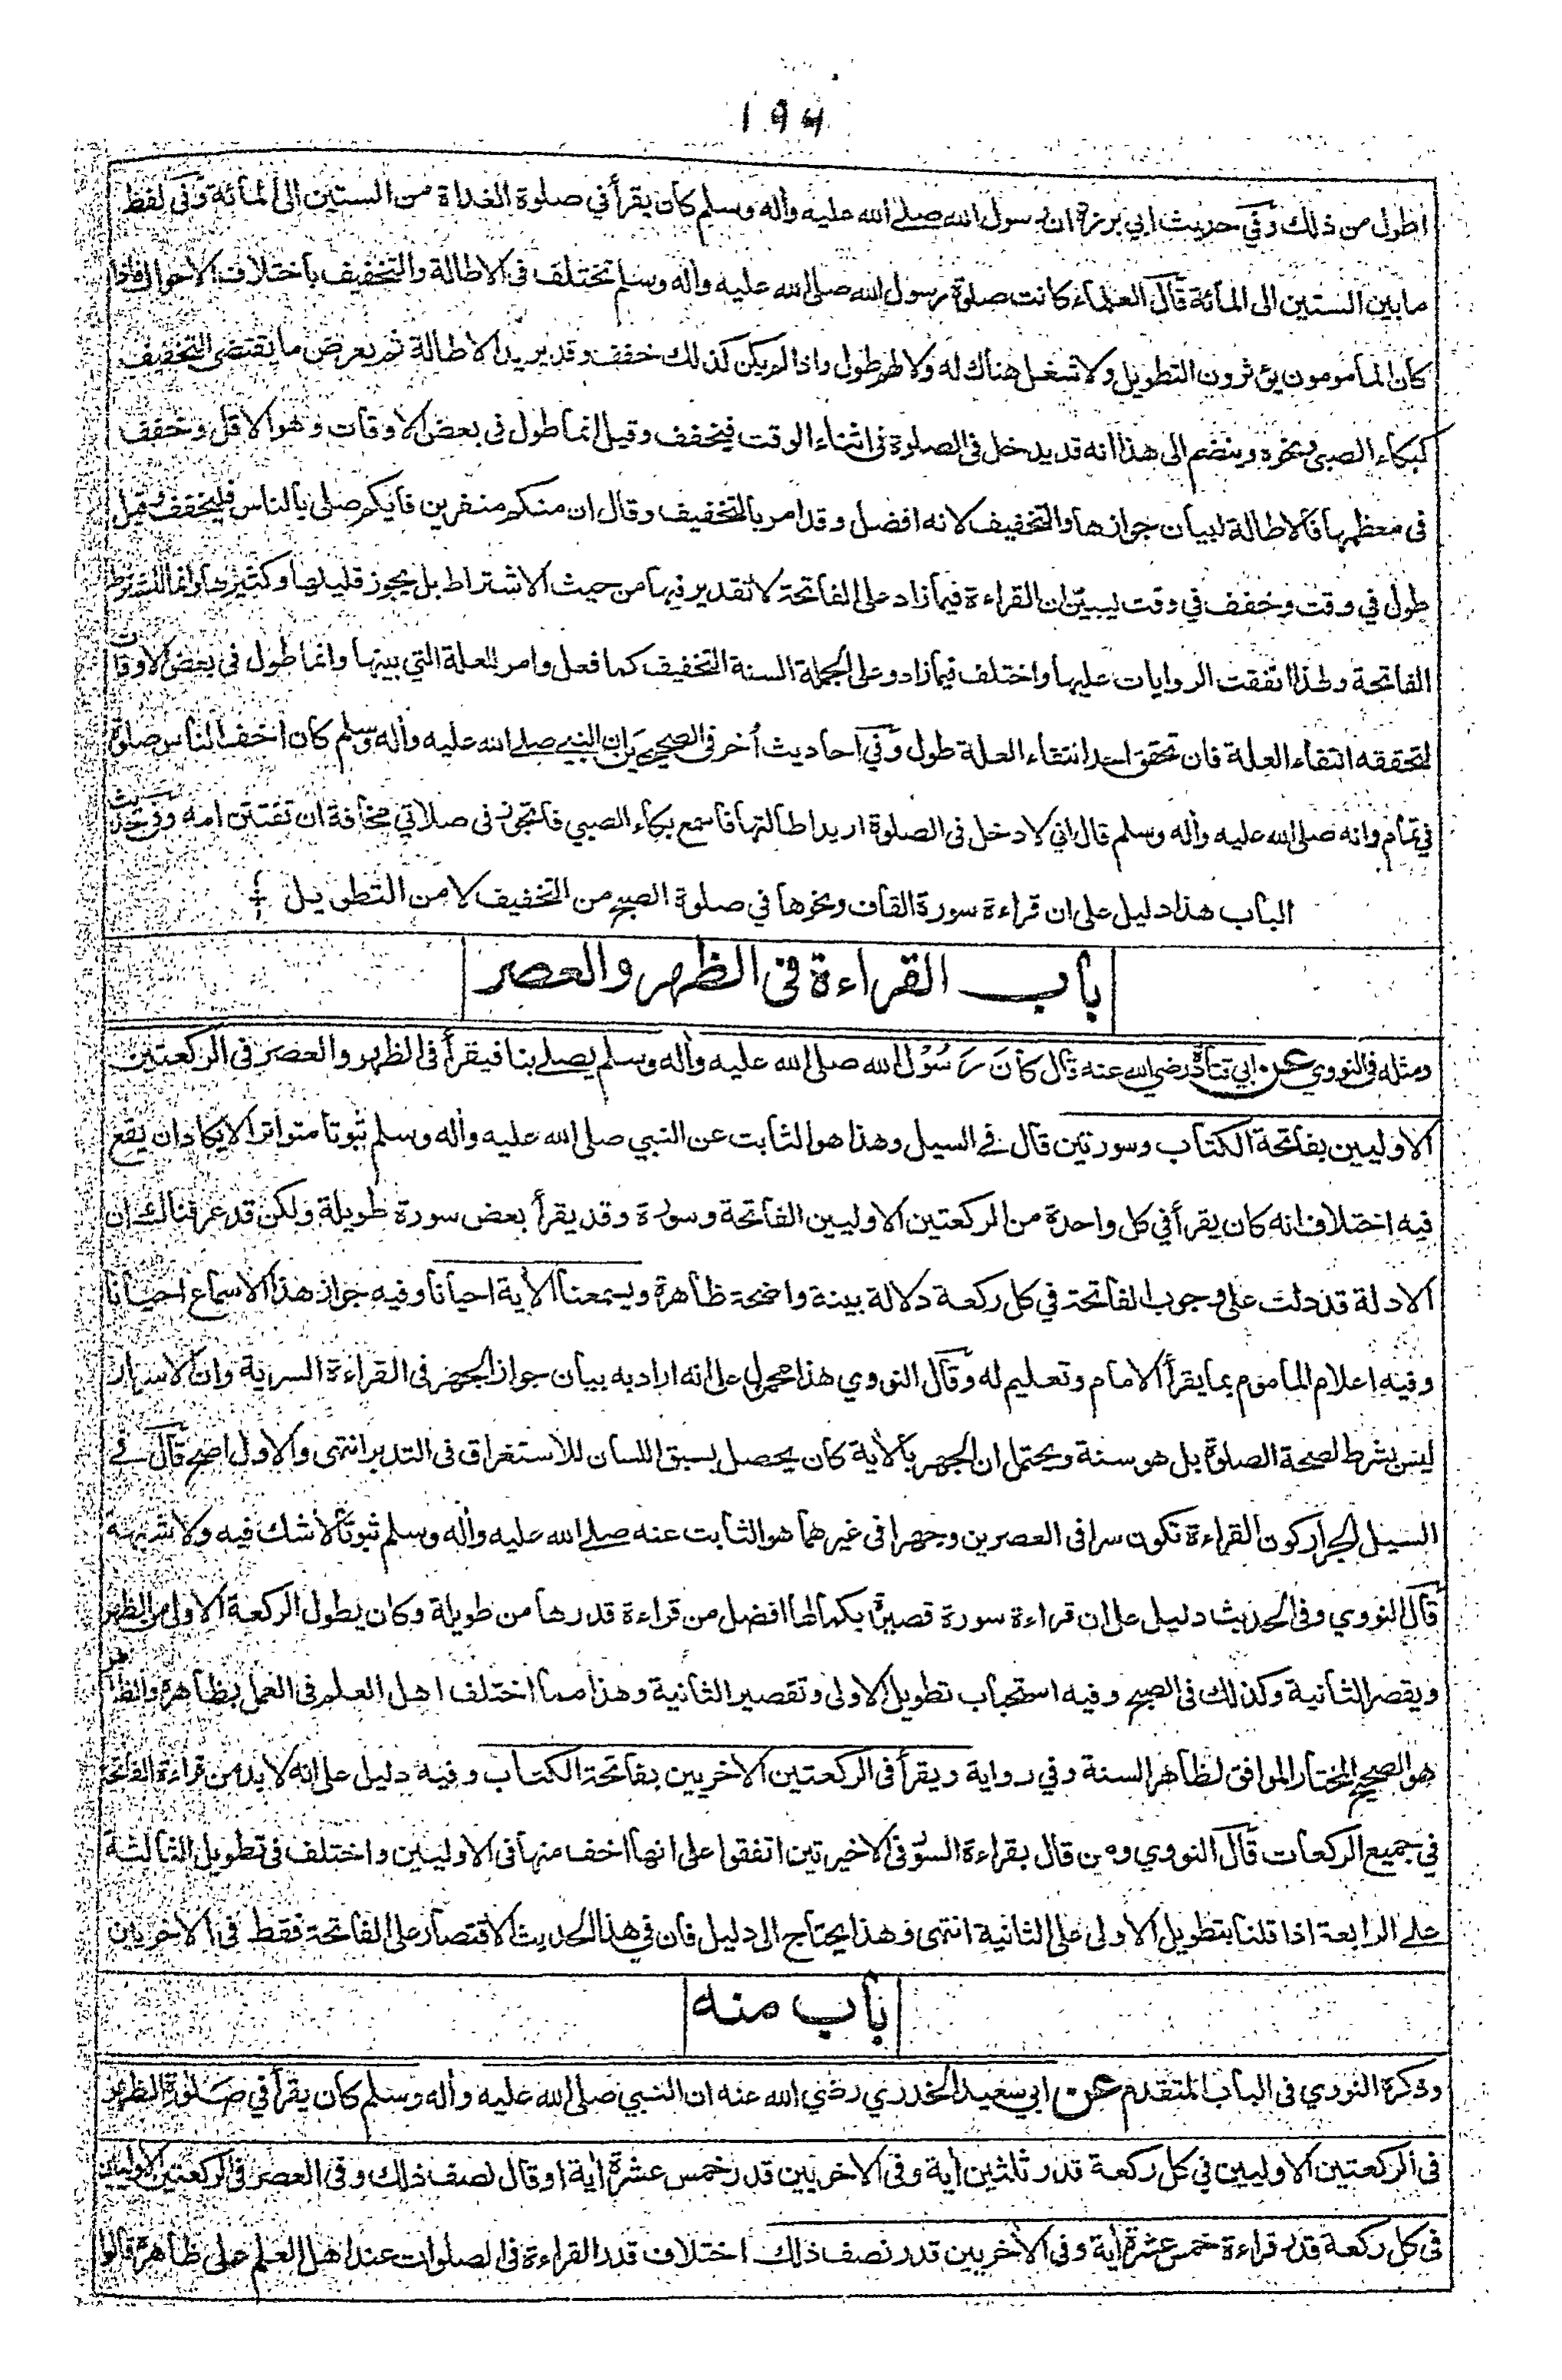 ۱۹۴
اطول من ذلك وفي حديث ابي برزة ان رسول الله صلے الله عليه وأله وسلم كان يقرأ في صلوة الغداة من الستين الى المائة وفى لفظ
ما بين الستين الى المائة قال العلماء كانت صلوة رسول الله صلى الله عليه وأله وسلم تختلف فى الاطالة والتخفيف باختلاف الاحوال فاذا
كان المأمومون يؤثرون التطويل ولا شغل هناك له ولا لهم طول واذا لم يكن كذلك خفف وقد يريد الاطالة ثم يعرض ما يقتضى التخفيف
كبكاء الصبي ونحوه وينضم الى هذا انه قد يدخل فى الصلوة فى اثناء الوقت فيخفف وقيل انما طول فى بعض الاوقات وهو الاقل وخفف
فى معظمها فالاطالة لبيان جوازها والتخفيف لانه افضل وقد امر بالتخفيف وقال ان منكم منفرين فايكم صلى بالناس فليخفف وقيل
طول في وقت وخفف في وقت ليبين ان القراءة فيما زاد على الفاتحة لا تقدير فيها من حيث الاشتراط بل يجوز قليلها وكثيرها وانما المشترط
الفاتحة ولهذا اتفقت الروايات عليها واختلف فيما زاد وعلى الجملة السنة التخفيف كما فعل وامر للعلة التي بينها وانما طول فى بعض الاوقات
لتحققه انتفاء العلة فان تحقق احد انتفاء العلة طول وفي احاديث أخر فى الصحيحين ان النبي صلے الله عليه وأله وسلم كان اخف الناس صلوة
في تمام وانه صلى الله عليه وأله وسلم قال اني لادخل فى الصلوة اريد اطالتها فاسمع بكاء الصبي فاتجوز فى صلاتي مخافة ان تفتتن امه وفى حديث
الباب هذا دليل على ان قراءة سورة القاف ونحوها في صلوة الصبح من التخفيف لا من التطويل
باب القراءة فى الظهر والعصر
ومثله فى النووي عن ابي قتادة رضي الله عنه قال كَانَ رَسُوْل الله صلى الله عليه وأله وسلم يصلے بنا فيقرأ فى الظهر والعصر فى الركعتين
الاوليين بفاتحة الكتاب وسورتين قال فے السيل وهذا هو الثابت عن النبي صلى الله عليه وأله وسلم ثبوتا متواترا لا يكاد ان يقع
فيه اختلاف انه كان يقرأ في كل واحدة من الركعتين الاوليين الفاتحة وسورة وقد يقرأ بعض سورة طويلة ولكن قد عرفناك ان
الادلة قد دلت على وجوب الفاتحة في كل ركعة دلالة بينة واضحة ظاهرة ويسمعنا الأية احيانا وفيه جواز هذا الاسماع احيانا
وفيه اعلام المأموم بما يقرأ الامام وتعليم له وقال النووي هذا محمول على انه اراد به بيان جواز الجهر فى القراءة السرية وان الاسرار
ليس بشرط لصحة الصلوة بل هو سنة ويحتمل ان الجهر بالأية كان يحصل بسبق اللسان للاستغراق فى التدبر انتهى والاول اصح قال فے
السيل الجرار كون القراءة تكون سرا فى العصرين وجهرا فى غيرهما هو الثابت عنه صلے الله عليه وأله وسلم ثبوتا لا شك فيه ولا شبهة
قال النووي وفى الحديث دليل على ان قراءة سورة قصيرة بكمالها افضل من قراءة قدرها من طويلة وكان يطول الركعة الاولى من الظهر
ويقصر الثانية وكذلك فى الصبح وفيه استحباب تطويل الاولى وتقصير الثانية وهذا مما اختلف اهل العلم فى العمل بظاهره والظاهر
هو الصحيح المختار الموافق لظاهر السنة وفي رواية ويقرأ فى الركعتين الاخريين بفاتحة الكتاب وفيه دليل على انه لا بد من قراءة الفاتحة
في جميع الركعات قال النووي ومن قال بقراءة السو فى الاخيرتين اتفقوا على انها اخف منها فى الاوليين واختلف فى تطويل الثالثة
علے الرابعة اذا قلنا بتطويل الاولى على الثانية انتهى وهذا يحتاج الى دليل فان في هذا الحديث الاقتصار على الفاتحة فقط فى الاخريان
باب منه
وذكره النووي فى الباب المتقدم عن ابي سعيد الخدري رضي الله عنه ان النبي صلى الله عليه وأله وسلم كان يقرأ في صَلوة الظهر
فى الركعتين الاوليين في كل ركعة قدر ثلثين أية وفى الاخريين قدر خمس عشرة أية او قال نصف ذلك وفى العصر فى الركعتين الاوليين
فى كل ركعة قدر قراءة خمس عشرة أية وفى الاخريين قدر نصف ذلك اختلاف قدر القراءة فى الصلوات عند اهل العلم على ظاهره قالوا